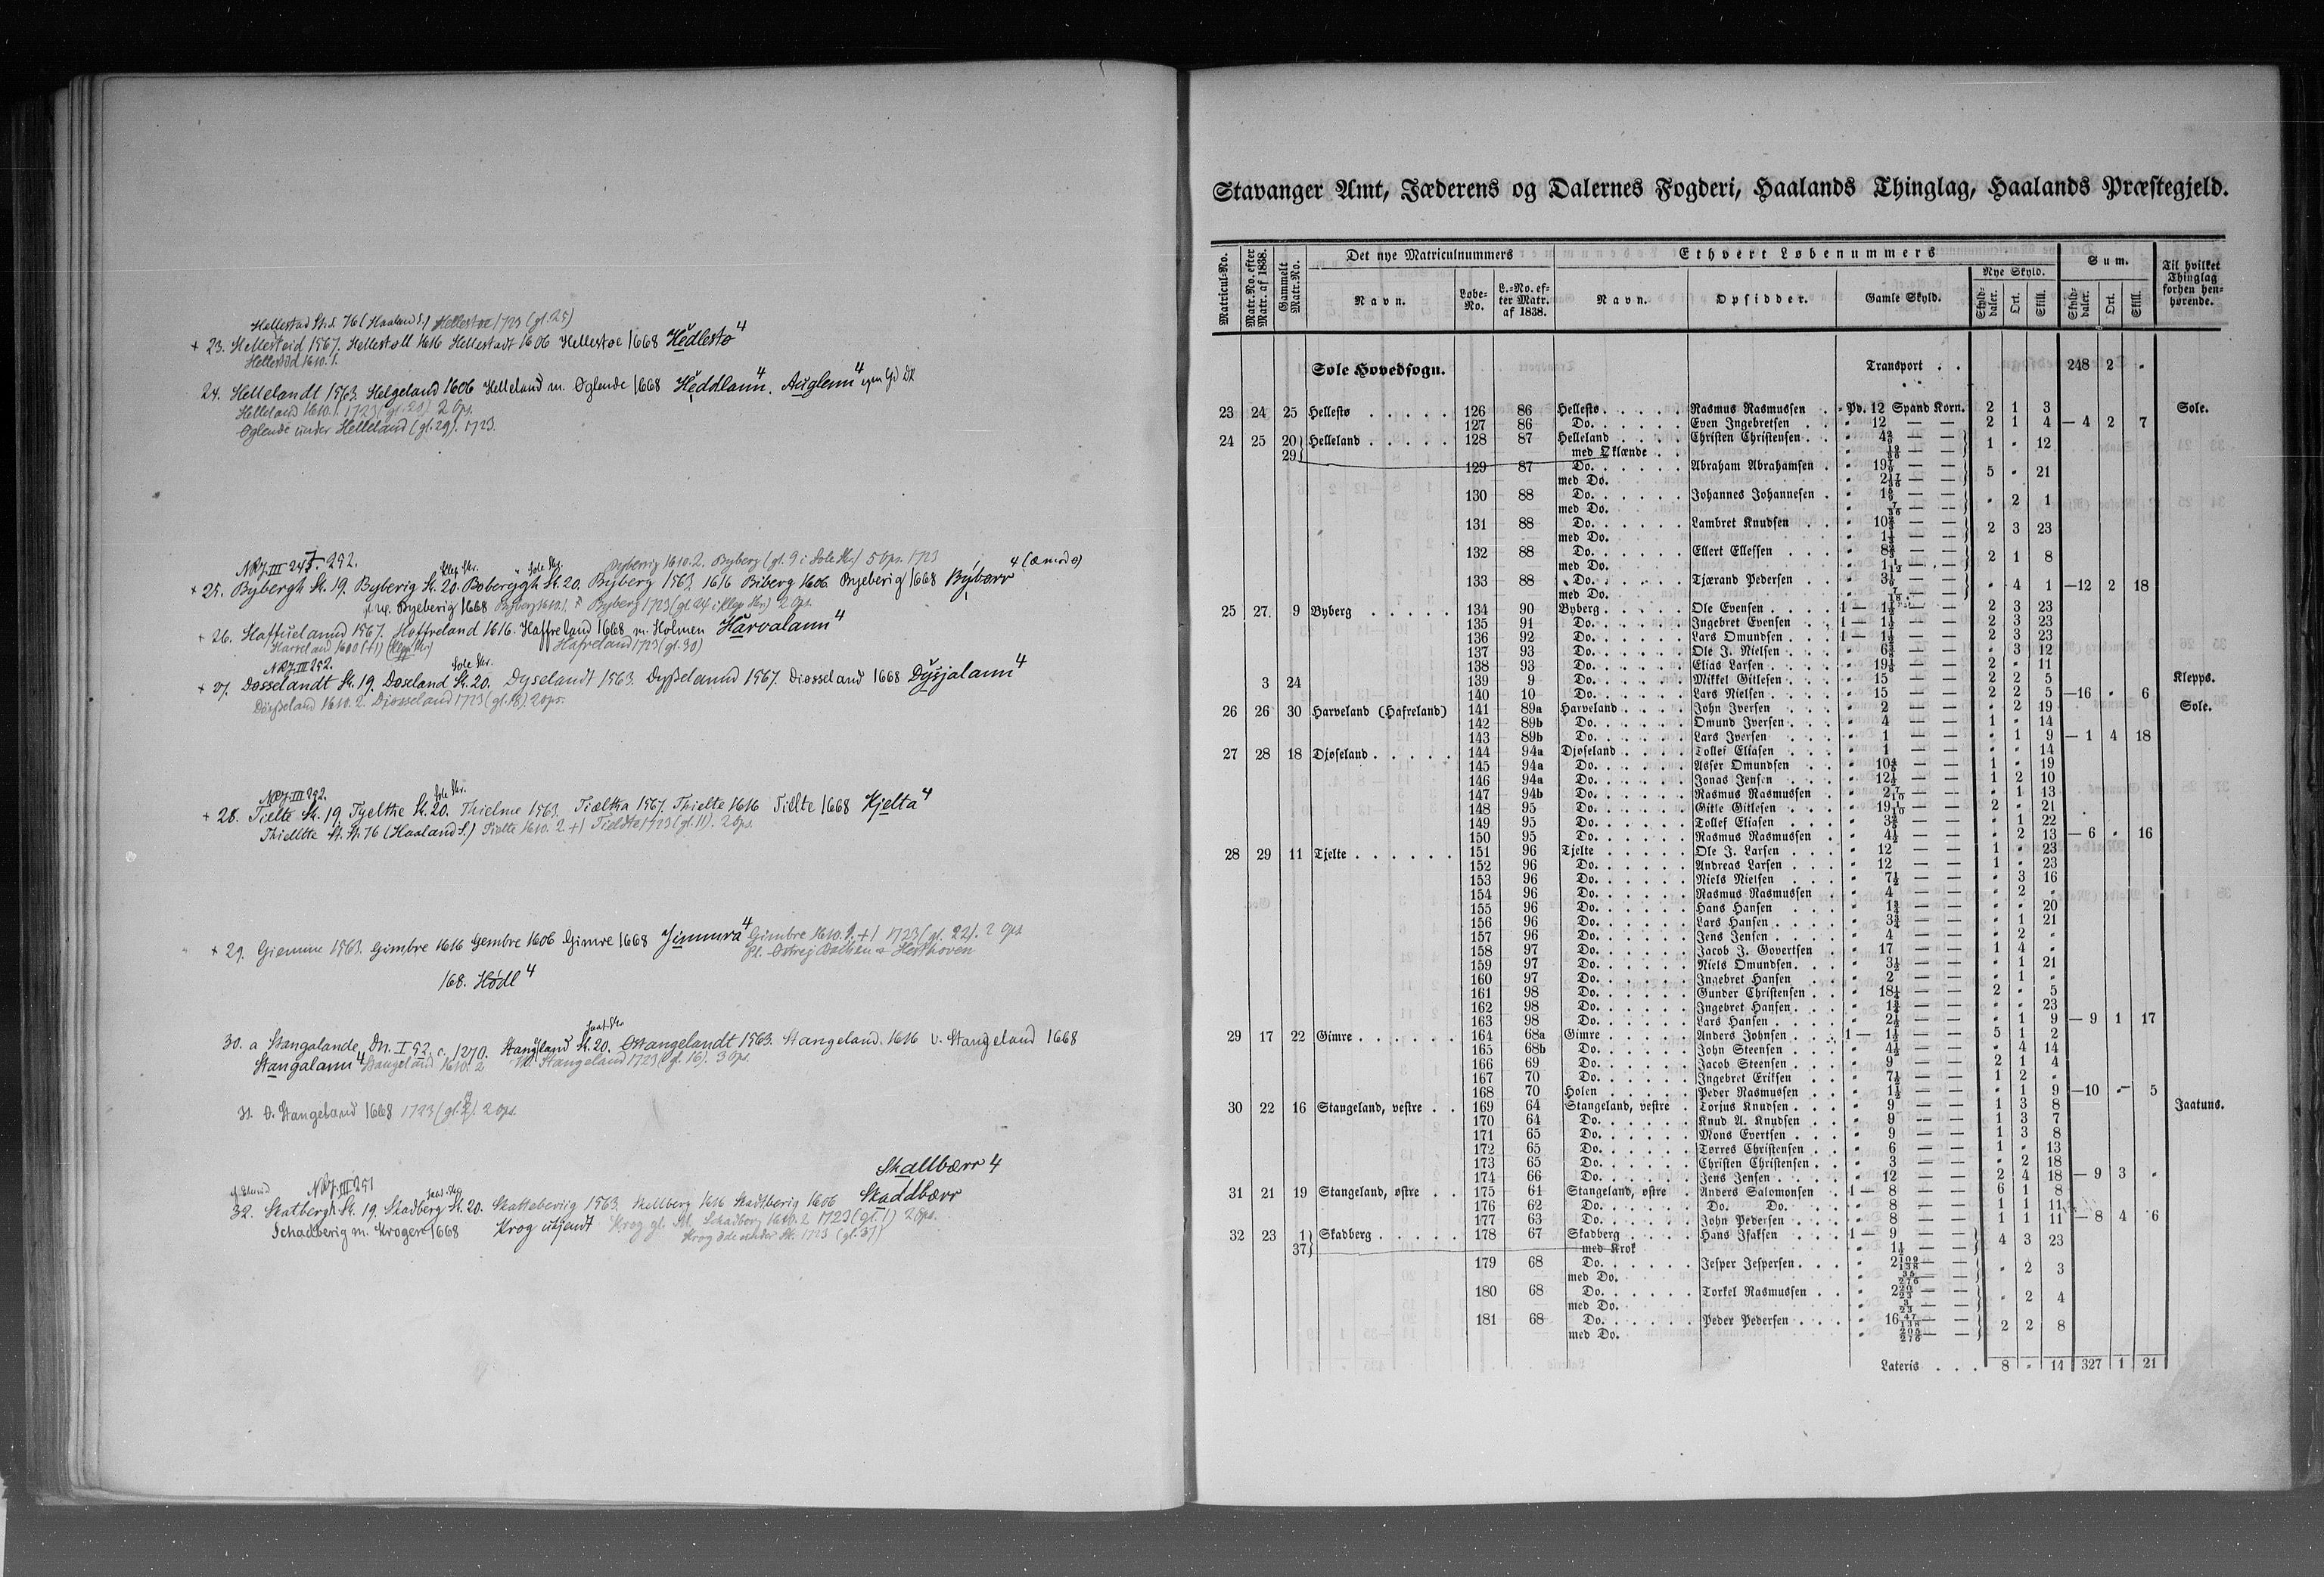 Hellestad St. S. 76 (Haaland S.) Hellestoe 1723 (gl. 25)
+ 23. Hellestøid 1567. Hellestoll 1616 Hellestadt 1606 Hellestoe 1668 Hedlestø 4
Hellestød 1610. 1.
24. Hellelandt 1563. Helgeland 1606 Helleland m. Oglende 1668 Heddlann 4. Auglenn 4
Helleland 1610. 1. 1723 (gl. 20) 2 Ops.
Oglende under Helleland (gl. 29). 1723.
NRJ. III 292. Byberrig 1610. 2. Byberg (gl. 9 i Sole Sk.) 5 Ops. 1723
+ 25. Bybergh Sk. 19. Byberig Sk. 20. Boberygh Sk. 20. Byberg 1563. 1616 Biberg 1606 Byeberig 1668 Bybærr 4
Byeberig 1668 Byberg 1610. 1. Byberg 1723 (gl. 24 i Klep Skr) 2 Ops.
+ 26. Haffuelannd 1567. Haffreland 1616. Haffreland 1668 m. Holmen Harvalann 4
Harreland 1610 (+1) (Klep Skr) Hafreland 1723 (gl. 30)
NRJ. III 252. Sole Skr.
+ 27. Dosselandt Sk. 19. Doseland Sk. 20. Dyselandt 1563. Dysselannd 1567. Diosseland 1668 Dysjalann 4
Døysseland 1610. 2. Djøsseland 1723 (gl. 18) 2 Ops.
NRJ. III 292. Sole Skr.
+ 28. Tielte Sk. 19. Tyelthe Sk. 20. Thielme 1563. Tiæltha 1567. Thielte 1616 Tielte 1668 Kjelta 4
Thiellte St. S. 76 (Haaland S.) Tielte 1610. 2 +1 Tieldte 1723 (gl. 11). 2 Ops.
+ 29. Giemme 1563. Gimbre 1616 Gembre 1606 Gimre 1668 Jimmra 4 Gimbre 1610. 1. +1 1723 (gl. 22). 2 Ops.
168. Hødl 4
30. a Stangalande Dn. I 92, c. 1270. Stangland Sk. 20. Østangelandt 1563. Stangeland. 1616 V. Stangeland 1668
Stangalann 4 Stangeland 1610. 2 V. Stangeland 1723 (gl. 16). 3 Ops.
31. Ø. Stangeland 1668 1723 (gl. 2). 2 Ops.
Skallbærr 4
NRJ. III 291
32. Skatbergh Sk. 19. Skadberg Sk. 20. Skatteberiig 1563. Skallberg 1616 Skadtberig 1606 Skaddbærr
Schadberig m. Kroger 1668 Krog ukjendt Krog gl. Schadberg 1610. 2 1723 (gl. 1) 2 Ops.
Krog øde under Sk. 1723 (gl. 37)
Stavanger Amt, Jæderens og Dalernes Fogderi, Haalands Thinglag, Haalands Præstegjeld.
Matricul-No. | Matr.No. efter Matr. af 1838. | Gammelt Matr.No. | Det nye Matriculnummers | Ethvert Løbenummers | Sum. | Til hvilket Thinglag forhen henhørende.
Navn. | Løbe-No. | L.-No. efter Matr. af 1838. | Navn. | Opsidder. | Gamle Skyld. | Nye Skyld. | Skylddaler. | Ort. | Skill. | Skylddaler. | Ort. | Skill.
Sole Hovedsogn. Transport . . 248 2 "
23 24 25 Hellestø . . . . . 126 86 Hellestø . . . . . Rasmus Rasmussen . " Pd. 12 Spand Korn. 2 1 3 Sole.
127 86 Do. . . . . . Even Ingebretsen . . " 12 — — 2 1 4 — 4 2 7
24 25 20} Helleland . . . . . 128 87 Helleland . . . . Christen Christensen . . " 4 2/9 — — } 1 " 12
29} med Oklænde . . " 19/36 — —
129 87 Do. . . . . . Abraham Abrahamsen . " 19 7/9 — — } 5 " 21
med Do. " 2 17/36 — —
130 88 Do. . . . . . Johannes Johannesen . " 1 5/9 — — } " 2 1
med Do. " 7/36 — —
131 88 Do. . . . . . Lambret Knudsen . . " 10 2/3 — — } 2 3 23
med Do. " 1 1/3 — —
132 88 Do. . . . . . Ellert Ellessen . . . " 8 2/3 — — } 2 1 8
med Do. " 1 1/12 — —
133 88 Do. . . . . . Tjærand Pedersen . . " 3 1/9 — — } " 4 1 —12 2 18
med Do. " 7/18 — —
25 27 9 Byberg . . . . . 134 90 Byberg . . . . . Ole Evensen . . . . 1 — 1 1/2 — — 2 3 23
135 91 Do. . . . . . Ingebret Evensen . . 1 — 1 1/2 — — 2 3 23
136 92 Do. . . . . . Lars Omundsen . . . 1 — 1 1/2 — — 2 3 23
137 93 Do. . . . . . Ole J. Nielsen . . . " 6 2/3 — — " 3 12
138 93 Do. . . . . . Elias Larsen . . . . " 19 1/3 — — 2 " 11
3 24 139 9 Do. . . . . . Mikkel Gitlesen . . . " 15 — — 2 2 5 Klepps.
140 10 Do. . . . . . Lars Nielsen . . . . " 15 — — 2 2 5 —16 " 6
26 26 30 Harveland (Hafreland) 141 89a Harveland . . . . John Iversen . . . " 2 — — " 2 19 Sole.
142 89b Do. . . . . . Omund Iversen . . . " 4 — — 1 " 14
143 89b Do. . . . . . Lars Iversen . . . " 1 — — " 1 9 — 1 4 18
27 28 18 Djøseland . . . . . 144 94a Djøseland . . . . Tollef Eliasen . . . " 1 — — " " 14
145 94a Do. . . . . . Asser Omundsen . . " 10 4/5 — — 1 " 19
146 94a Do. . . . . . Jonas Jensen . . . " 12 1/2 — — 1 2 10
147 94b Do. . . . . . Rasmus Rasmussen . " 2 7/10 — — " 1 13
148 95 Do. . . . . . Gitle Gitlesen . . . " 19 1/10 — — 2 " 21
149 95 Do. . . . . . Tollef Eliasen . . . " 3 2/5 — — " 1 22
150 95 Do. . . . . . Rasmus Rasmussen . " 4 1/2 — — " 2 13 — 6 " 16
28 29 11 Tjelte . . . . . . 151 96 Tjelte . . . . . Ole J. Larsen . . . " 12 — — 1 " 23
152 96 Do. . . . . . Andreas Larsen . . . " 12 — — 1 " 23
153 96 Do. . . . . . Niels Nielsen . . . " 7 1/2 — — " 3 16
154 96 Do. . . . . . Rasmus Rasmussen . " 4 — — " 2 "
155 96 Do. . . . . . Hans Hansen . . . " 1 3/4 — — " " 20
156 96 Do. . . . . . Lars Hansen . . . . " 3 3/4 — — " 1 21
157 96 Do. . . . . . Jens Jensen . . . . " 4 — — " 2 "
158 97 Do. . . . . . Jacob J. Govertsen . " 17 — — 1 4 "
159 97 Do. . . . . . Niels Omundsen . . . " 3 1/2 — — " 1 21
160 97 Do. . . . . . Ingebret Hansen . . " 2 — — " 1 "
161 98 Do. . . . . . Gunder Christensen . . " 18 1/4 — — 2 " 5
162 98 Do. . . . . . Ingebret Hansen . . . " 1 3/4 — — " " 23
163 98 Do. . . . . . Lars Hansen . . . . " 2 1/2 — — " 1 9 — 9 1 17
29 17 22 Gimre . . . . . . 164 68a Gimre . . . . . Anders Johnsen . . . 1 — 1 1/2 — — 5 1 2
165 68b Do. . . . . . John Steensen . . . " 4 1/2 — — " 4 14
166 69 Do. . . . . . Jacob Steensen . . . " 9 — — 2 1 4
167 70 Do. . . . . . Ingebret Eriksen . . " 7 1/2 — — 1 2 "
168 70 Holen . . . . . Peder Rasmussen . . " 1 1/2 — — " 1 9 —10 " 5
30 22 16 Stangeland, vestre . . 169 64 Stangeland, vestre . Torjus Knudsen . . . " 9 — — 1 3 8 Jaatuns.
170 64 Do. . . . . . Knud A. Knudsen . . " 9 — — 1 3 7
171 65 Do. . . . . . Mons Evertsen . . . " 9 — — 1 3 8
172 65 Do. . . . . . Torres Christensen . . " 6 — — 1 " 13
173 65 Do. . . . . . Christen Christensen . . " 3 — — " 2 18
174 66 Do. . . . . . Jens Jensen . . . . " 12 — — 2 4 18 — 9 3 "
31 21 19 Stangeland, østre . . 175 61 Stangeland, østre . Anders Salomonsen . 1 — 8 — — 6 1 8
176 62 Do. . . . . . Do. Do. . . " 8 — — 1 1 11
177 63 Do. . . . . . John Pedersen . . . " 8 — — 1 1 11 — 8 4 6
32 23 1} Skadberg . . . . . 178 67 Skadberg . . . . Hans Isaksen . . . 1 — 9 — — } 4 3 23
37} med Krok " 1 1/2 — —
179 68 Do. . . . . . Jesper Jespersen . . . " 2 109/138 — — } " 2 3
med Do. " 35/276 — —
180 68 Do. . . . . . Torkel Rasmussen . . " 2 20/23 — — } " 2 4
med Do. " 3/23 — —
181 68 Do. . . . . . Peder Pedersen . . . " 16 47/138 — — } 2 2 8
med Do. " 205/276 — —
Lateris . . . 8 " 14 327 1 21